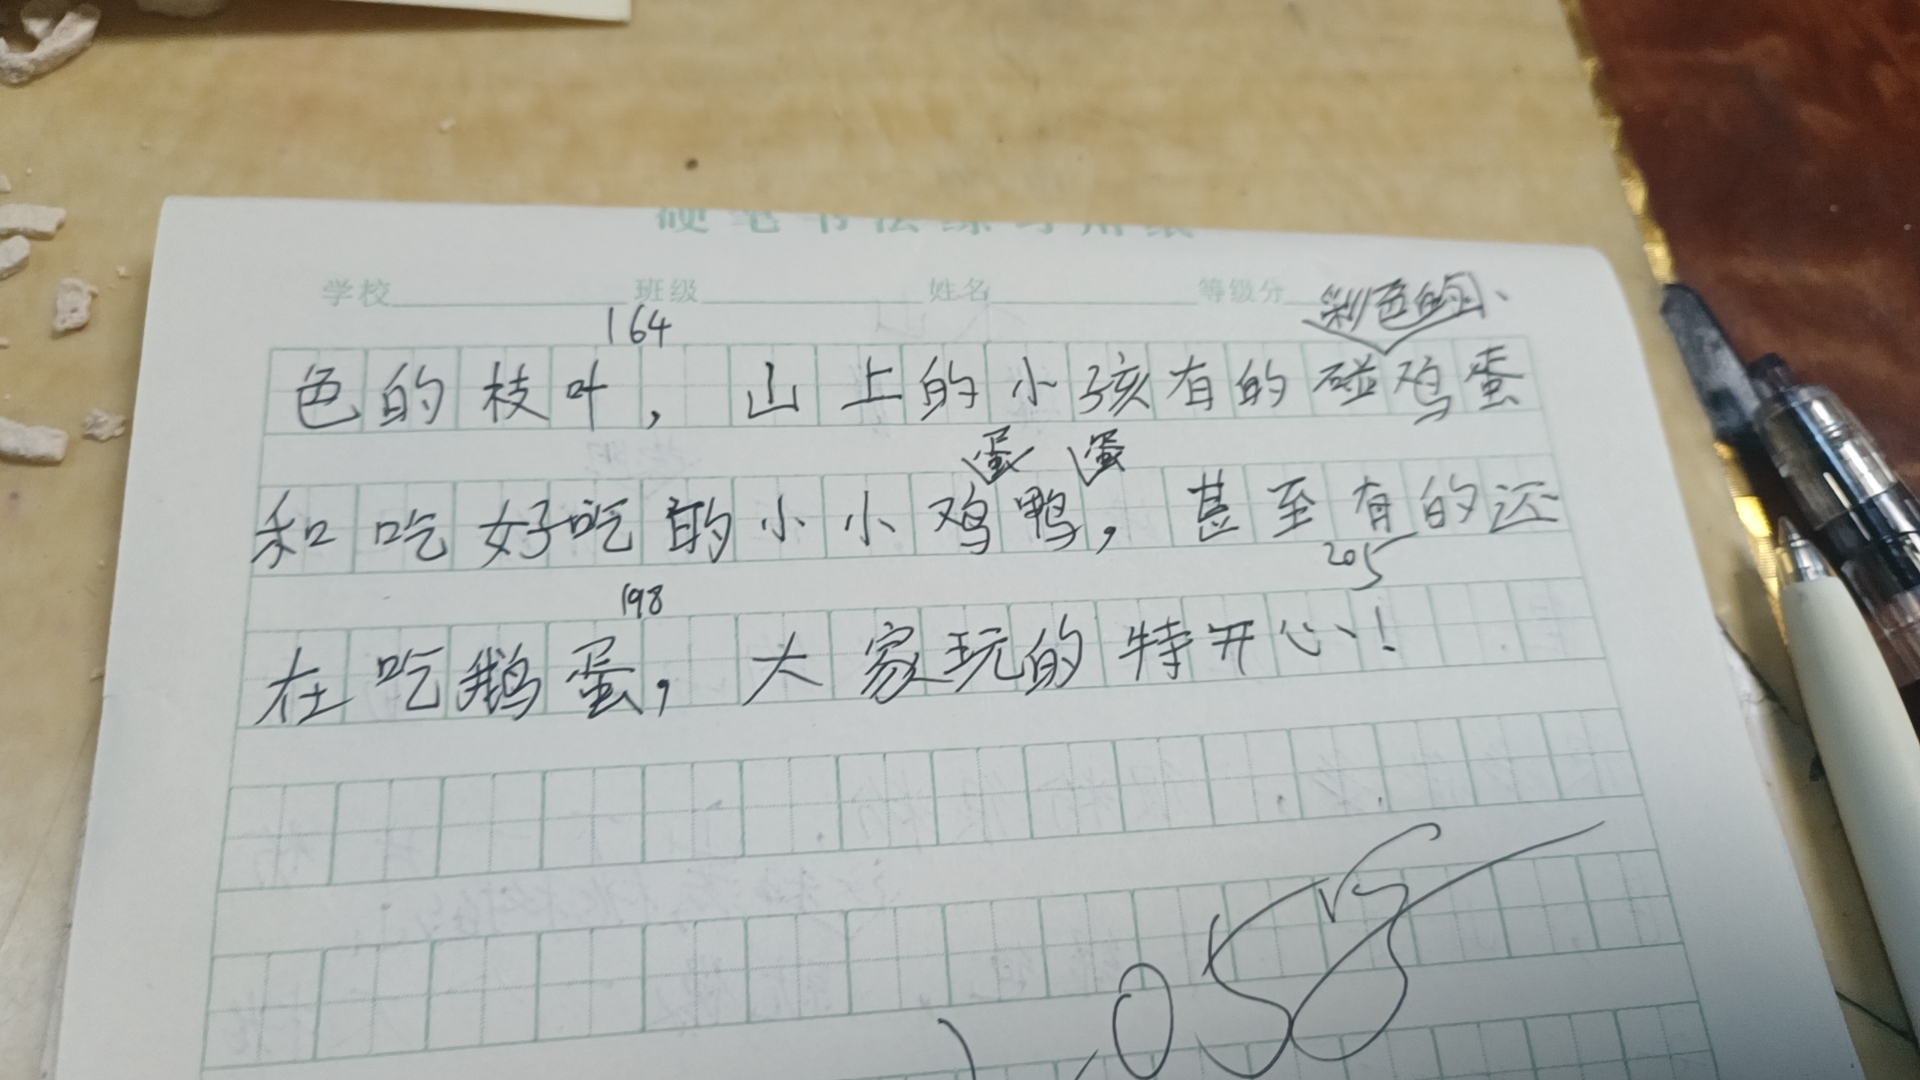 硬笔书法练习用纸
学校 班级 姓名 等级分
彩色的
164
色的枝叶，山上的小孩有的碰鸡蛋
蛋 蛋
和吃好吃的小小鸡鸭，甚至有的还
198 205
在吃鹅蛋，大家玩的特开心！